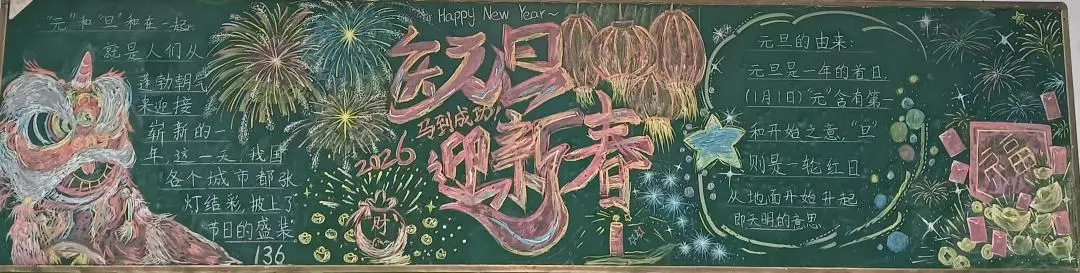 "元"和"旦"和在一起,
就是人们从
蓬勃朝气
来迎接
崭新的一
年,这一天,我国
各个城市都张
灯结彩,披上了
节日的盛装
136
Happy New Year~
庆元旦
马到成功!
迎新春
2026
财
元旦的由来:
元旦是一年的首日,
(1月1日)"元"含有第一
和开始之意,"旦"
则是一轮红日
从地面开始升起
即天明的意思